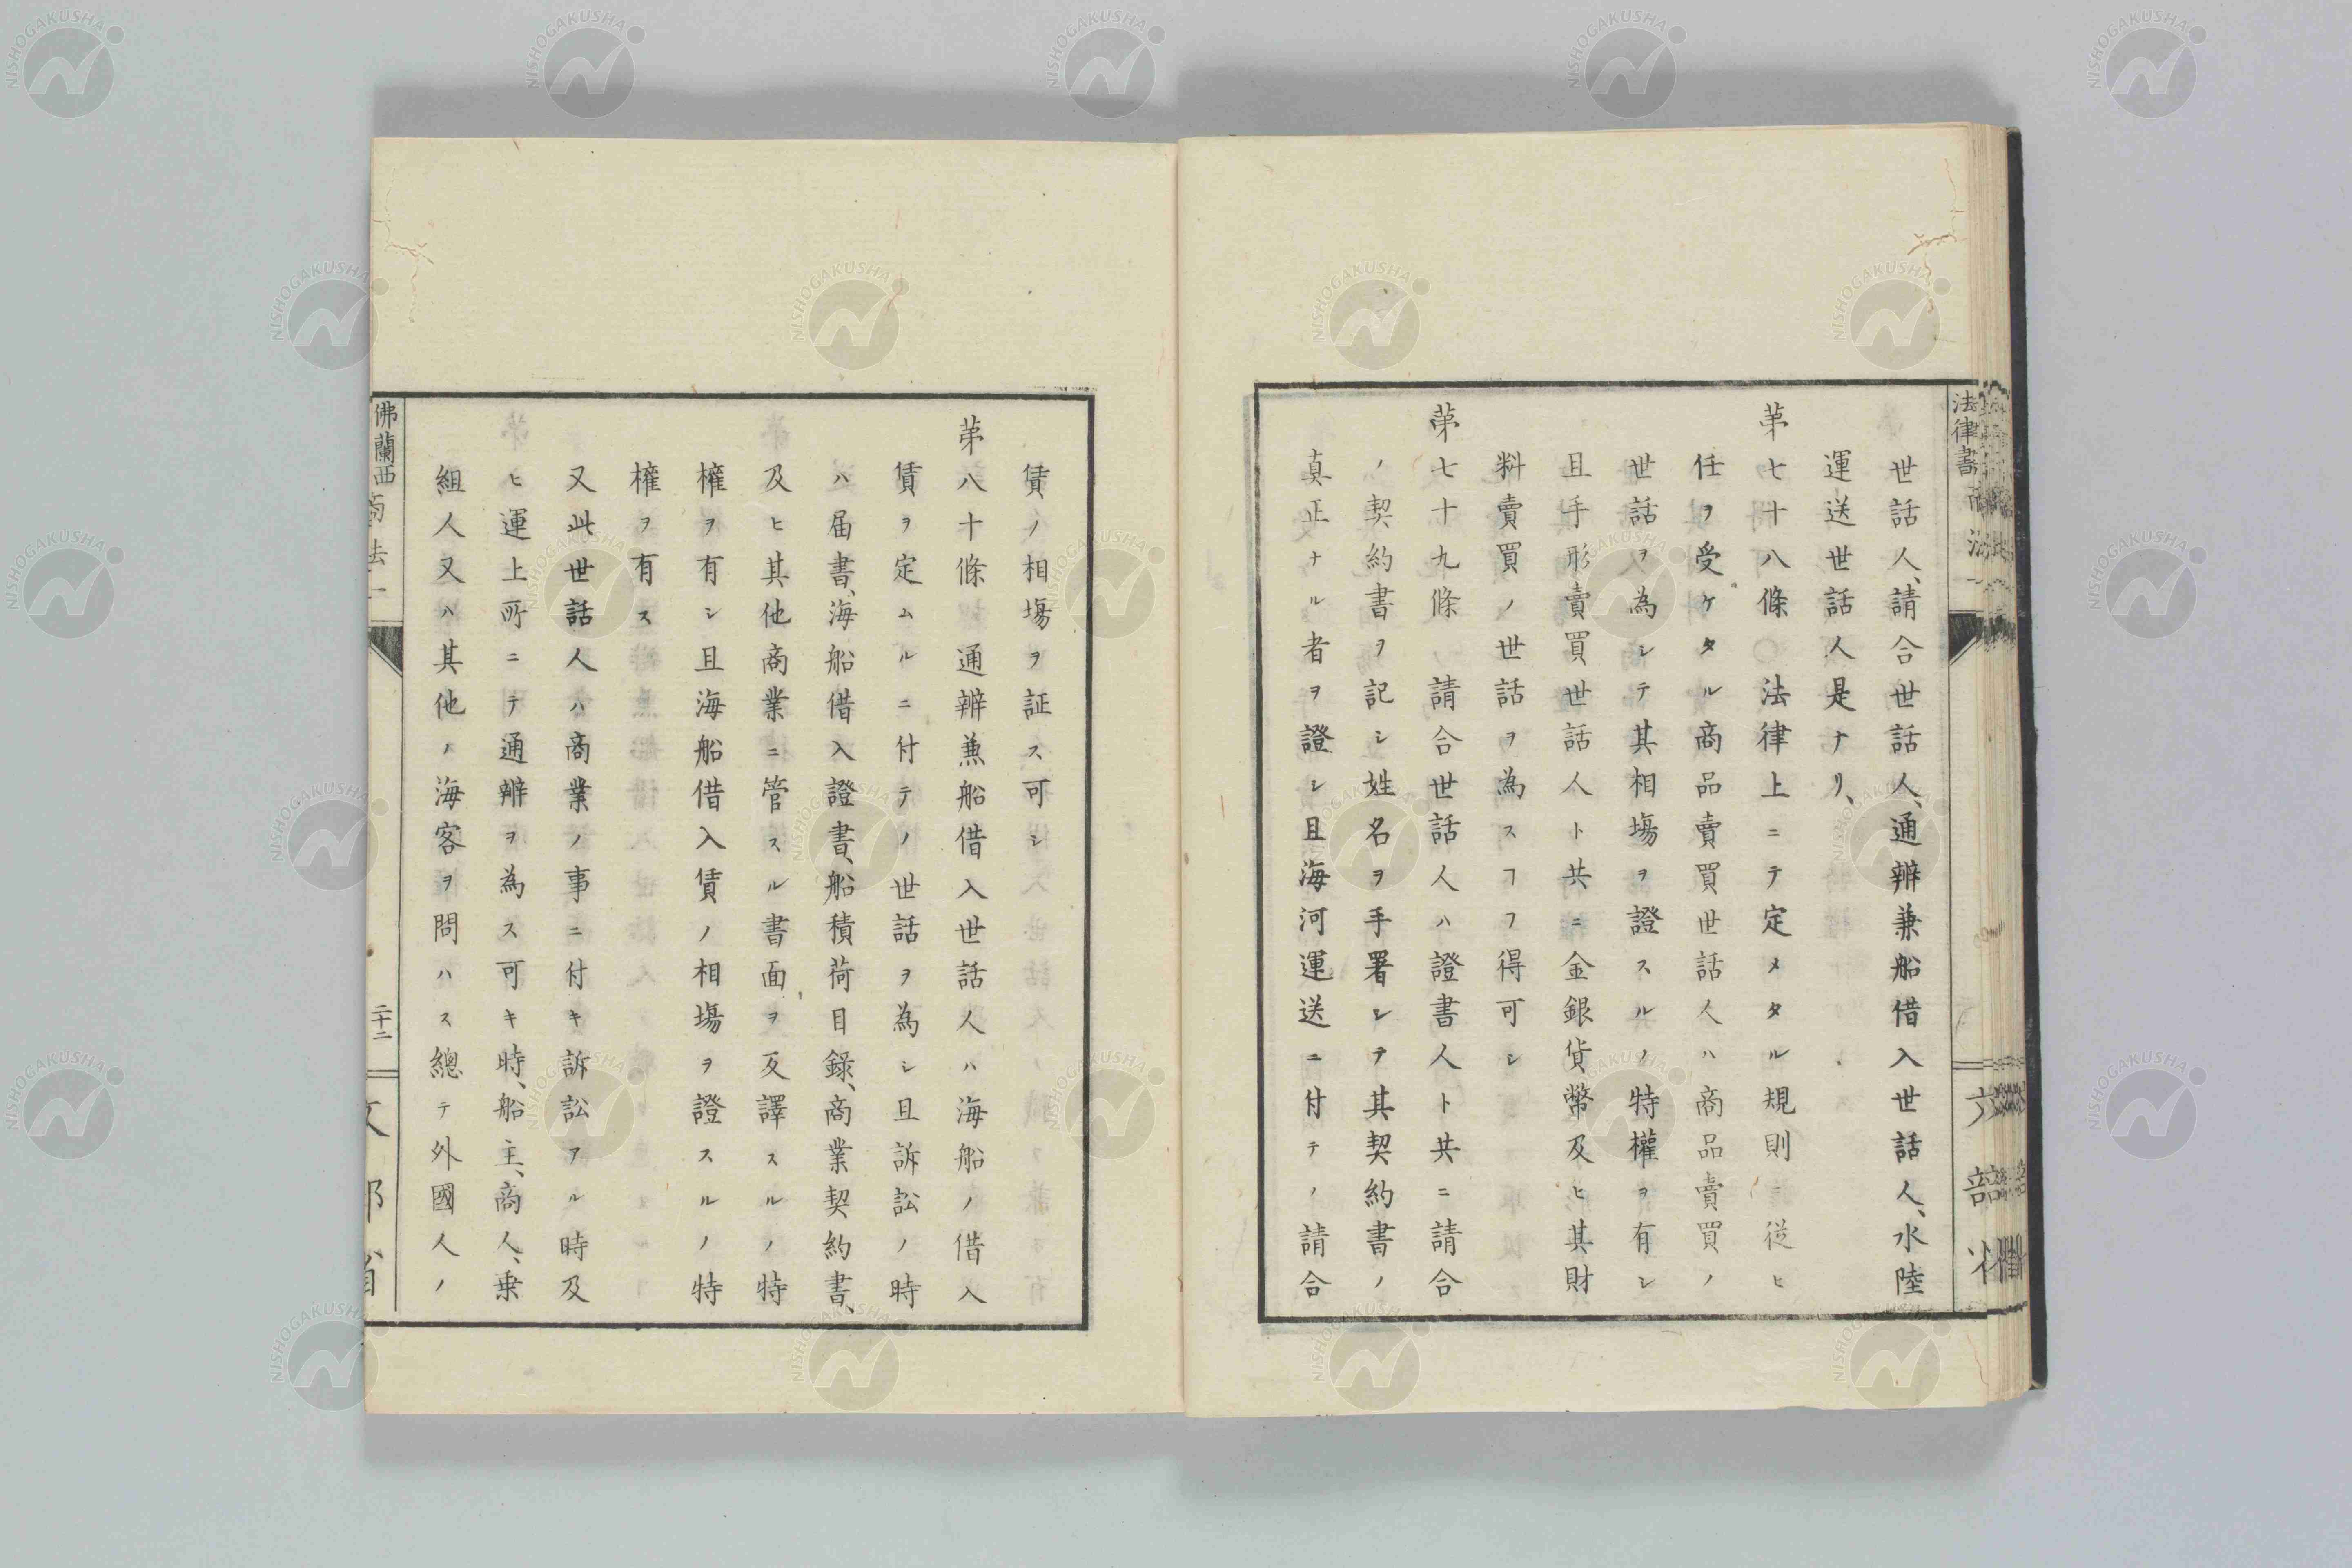 世話人、請合世話人、通辨兼船借入世話人、水陸
運送世話人是ナリ、
苐七十八條　法律上ニテ定メタル規則ニ従ヒ
任ヲ受ケタル商品賣買世話人ハ商品賣買ノ
世話ヲ為シテ其相塲ヲ證スルノ特權ヲ有シ
且手形賣買世話人ト共ニ金銀貨幣及ヒ其財
料賣買ノ世話ヲ為スヿヲ得可シ
苐七十九條　請合世話人ハ證書人ト共ニ請合
ノ契約書ヲ記シ姓名ヲ手署シテ其契約書ノ
真正ナル者ヲ證シ且海河運送ニ付テノ請合
賃ノ相塲ヲ証ス可シ
苐八十條　通辨兼船借入世話人ハ海船ノ借入
賃ヲ定ムルニ付テノ世話ヲ為シ且訴訟ノ時
ハ届書、海船借入證書、船積荷目錄、商業契約書、
及ヒ其他商業ニ管スル書面ヲ反譯スルノ特
權ヲ有シ且海船借入賃ノ相塲ヲ證スルノ特
權ヲ有ス
又此世話人ハ商業ノ事ニ付キ訴訟アル時及
ヒ運上所ニテ通辨ヲ為ス可キ時、船主、商人、乗
組人又ハ其他ノ海客ヲ問ハス總テ外國人ノ
佛蘭西商法一
二十二
文部省
法律書
NISHOGAKUSHA